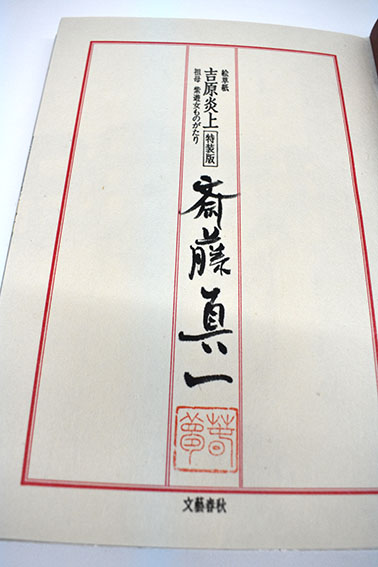 絵草紙
吉原炎上 特装版
祖母 紫遊女ものがたり
斎藤真一
文藝春秋